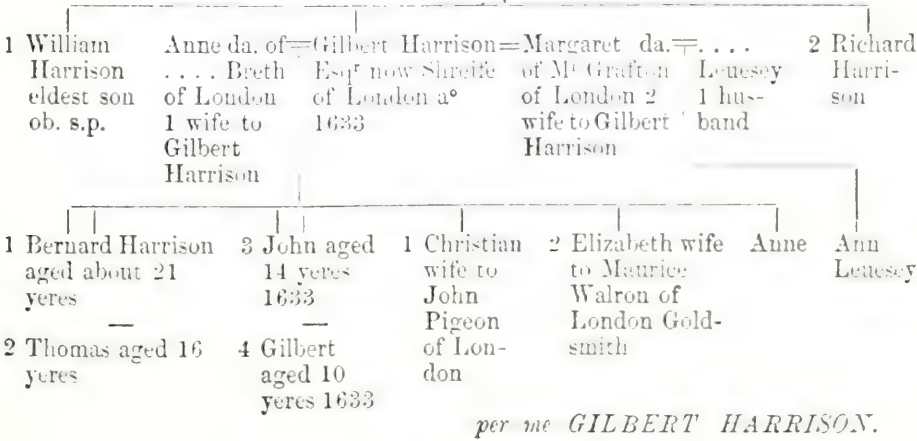 1 William
Harrison
eldest son
ob. s.p.
Anne da. of
. . . . Breth
of London
1 wife to
Gilbert
Harrison
Gilbert Harrison
Esqr now Shreife
of London ao
1633
Margaret da.
of Mr Grafton
of London 2
wife to Gilbert
Harrison
. . . .
Leuesey
1 hus-
band
2 Richard
Harri-
son
1 Bernard Harrison
aged about 21
yeres
2 Thomas aged 16
yeres
3 John aged
14 yeres
1633
4 Gilbert
aged 10
yeres 1633
1 Christian
wife to
John
Pigeon
of Lon-
don
2 Elizabeth wife
to Maurice
Walron of
London Gold-
smith
Anne
Ann
Leuesey
per me GILBERT HARRISON.